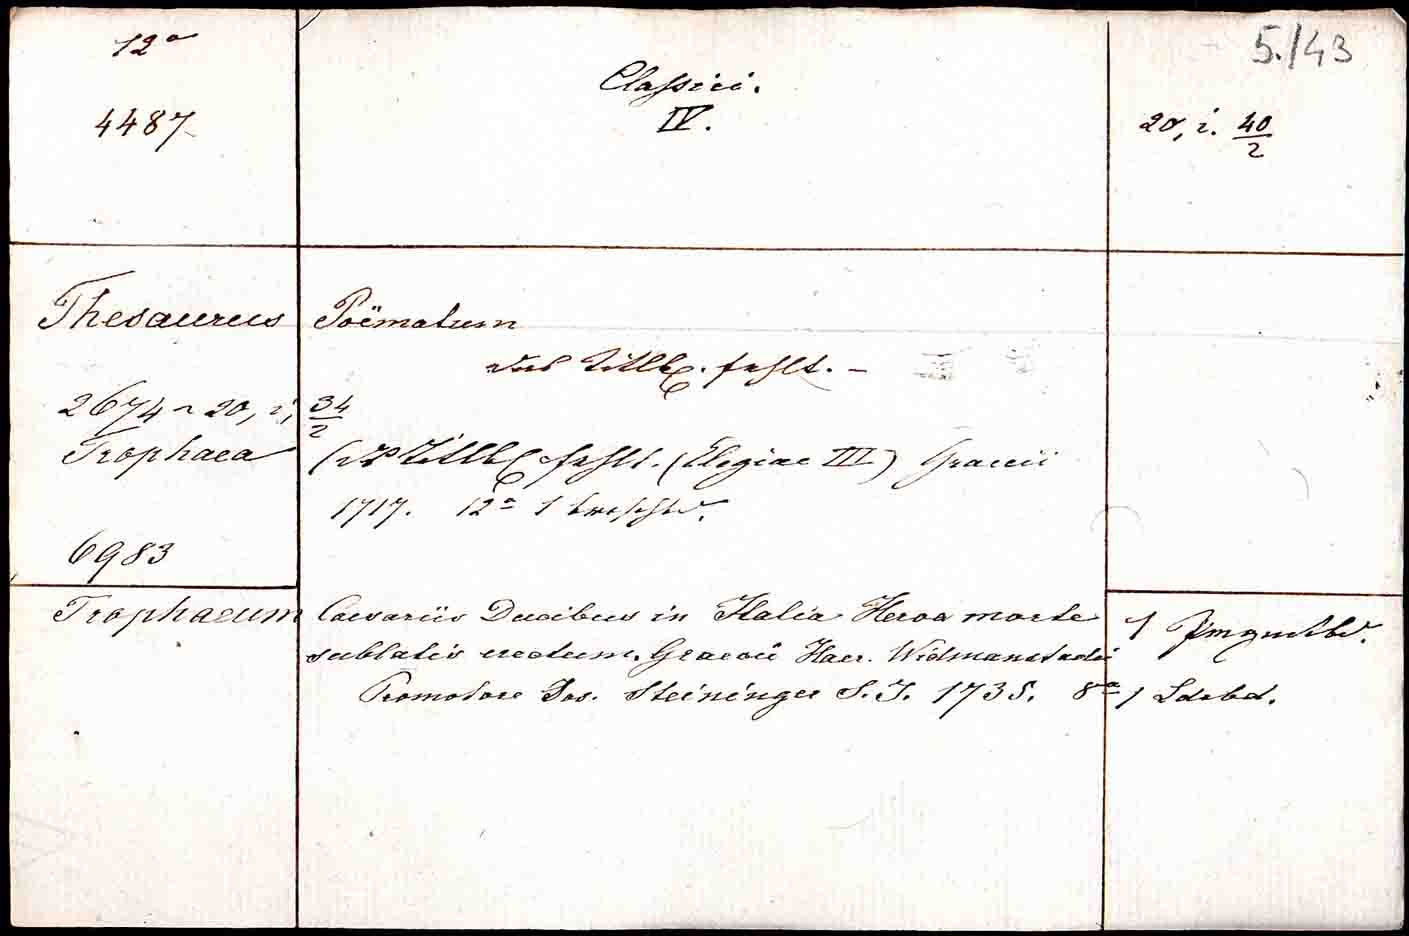 12°
5./43
Classici.
4487
IV.
20, i. 40/2
Thesaurus Poëmatum
das Titlb. fehlt. –
2674 ~ 20, i, 34/2
Trophaea (das Titlb. fehlt. (Elegiae III) Graecii
1717. 12° 1 broschbd.
6983
Trophaeum Caesariis Ducibus in Italia Heroa morte
sublatis erectum. Graecii Haer. Widmanstadii
1
Promotore Jos. Steininger S. J. 1735. 8° 1 Ldrbd.